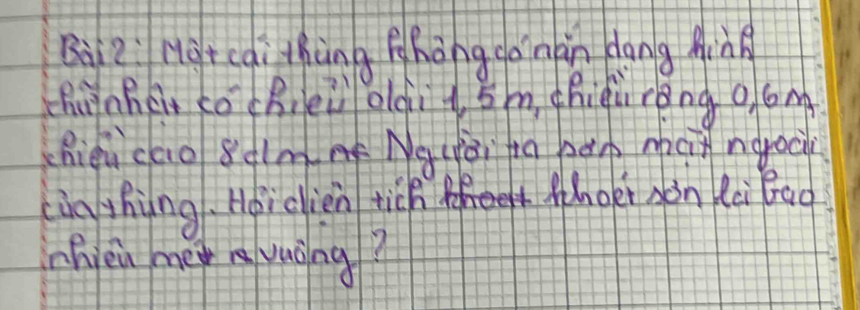 Bài 2: Một cái thùng không có nắp dạng hình
chữ nhật có chiều dài 1,5m, chiều rộng 0,6m
chiều cao 8dm. Người ta sơn mặt ngoài
của thùng. Hỏi diện tích sơn là bao
nhiêu mét vuông?